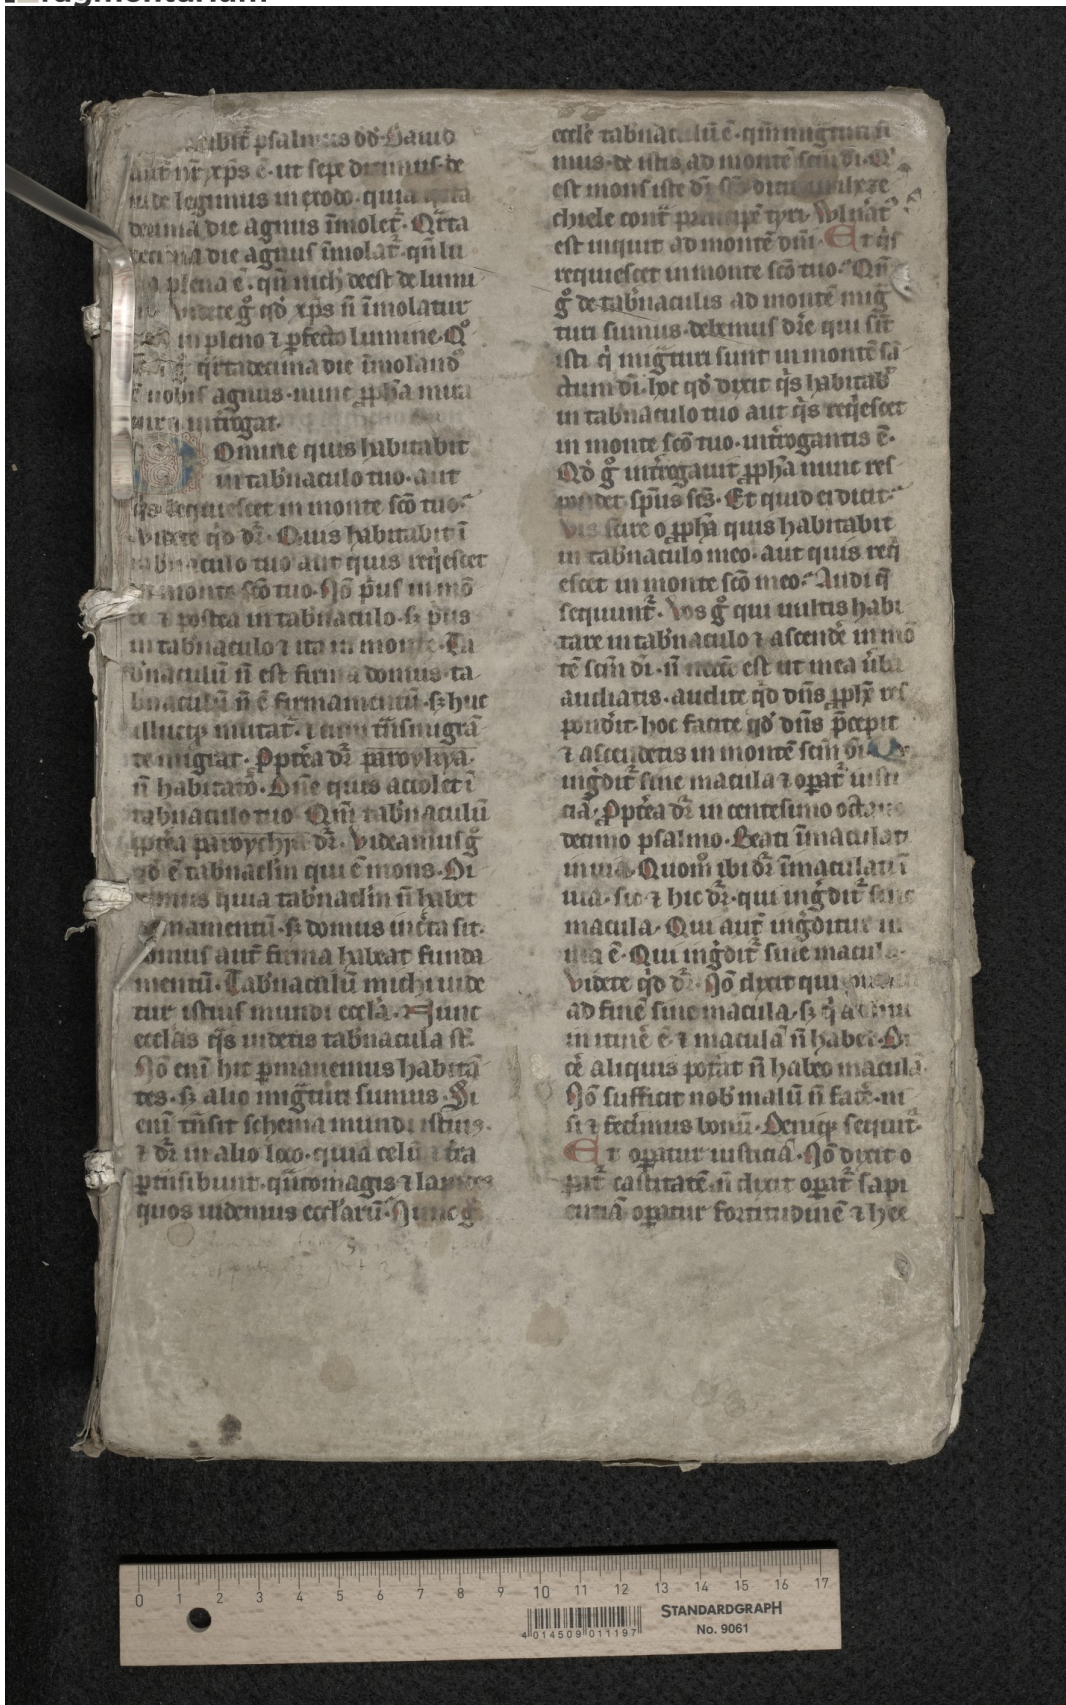 psalmus dd. Dauid
aut̃ nr̃ xp̃s ẽ. ut sepe diximus. de
inde legimus in exodo. quia
decima die agnus ĩmolet᷑. Qr̃ta
decima die agnus ĩmolat᷑. qñ lu
na plena ẽ. qñ nich̃ deest de lumi
Videte gͦ qd̓ xp̃s ñ ĩmolatur
in pleno ⁊ ꝑfecto lumine. Qͦ
qr̃tadecima die ĩmolandͦ
ẽ nobis agnus. nunc ꝓph̃a mira
intr̃ogat.
Domine quis habitabit
in tab̓naculo tuo. aut
q̓s requiescet in monte sc̃o tuo.
Videte qd̓ dr̃. Quis habitabit ĩ
tab̓naculo tuo aut quis req̓escet
in monte sc̃o tuo. Nõ p̓us in mõ
te ⁊ postea in tab̓naculo. sꝫ p̓us
in tab̓naculo ⁊ ita in monte. Ta
b̓naculũ ñ est firma domus. ta
b̓naculũ ñ ẽ firmamentũ. sꝫ huc
illucqꝫ mutat᷑. ⁊ cum tñsmigrã
te migrat. Ꝓpt̓ea dr̃ paroychya.
ñ habitatͦ. Dñe quis accolet ĩ
tab̓naculo tuo. Qm̃ tab̓naculũ
ꝓpt̓ea paroychya dr̃. Videamus gͦ
qd̓ ẽ tab̓nacl̃m qui ẽ mons. Di
ximus quia tab̓nacl̃m ñ habet
firmamentũ. sꝫ domus inc̓ta sit.
domus aut̃ firma habeat funda
mentũ. Tab̓naculũ michi uide
tur istius mundi eccl̃a. Nunc
eccl̃as q̓s uidetis tab̓nacula st̃.
Nõ eni hic ꝑmanemus habitã
tes. sꝫ alio mig̃turi sumus. Si
eni tñsit schema mundi istius.
⁊ dr̃ in alio loco. quia celũ ⁊ t̓ra
ꝑtñsibunt. qñtomagis ⁊ lapides
quos uidemus eccl̃arũ. Nunc gͦ
eccl̃e tab̓naculũ ẽ. qm̃ mig̃turi su
mus. de istis ad montẽ scm̃ di. Qͥ
est mons iste di
chiele cont̃ principẽ tyri. Vuln̓at᷑
est inquit ad montẽ dñi. Et q̓s
requiescet in monte sc̃o tuo. Qñ
gͦ de tab̓naculis ad montẽ mig̃
turi sumus. debemus dr̃e qui sñt
isti q̓ mig̃turi sunt in montẽ sã
ctum di. hoc qd̓ dixit q̓s habitab̓
in tab̓naculo tuo aut q̓s req̓escet
in monte sc̃o tuo. int̓rogantis ẽ.
Qd̓ gͦ int̓rogauit ꝓph̃a nunc res
pondet sp̃us sc̃s. Et quid ei dicit.
Vis scire o ꝓph̃a quis habitabit
in tab̓naculo meo. aut quis req̓
escet in monte sc̃o meo. Audi q̃
sequunt᷑. Vos gͦ qui uultis habi
tare in tab̓naculo ⁊ ascende᷑ in mõ
tẽ scm̃ di. ñ necc̃e est ut mea u̓ba
audiatis. audite qd̓ dñs ꝓph̃e res
pond̓it. hoc facite qd̓ dñs p̃cepit
⁊ ascendetis in montẽ scm̃ di. Qui
ing̓dit᷑ sine macula ⁊ oꝑat᷑ iusti
ciã. Ꝓpt̓ea dr̃ in centesimo octauo
decimo psalmo. Beati ĩmaculati
in uia. Quomͦ ibi dr̃ ĩmaculati ĩ
uia. sic ⁊ hic dr̃. qui ing̓dit᷑ sine
macula. Qui aut̃ ing̓ditur in
uia ẽ. Qui ing̓dit᷑ sine macula.
Videte qd̓ dr̃. Nõ dixit qui
ad finẽ sine macula. sꝫ q̓ adhuc
in itine᷑ ẽ ⁊ maculã ñ habet. Di
ce᷑ aliquis pot̃at ñ habeo maculã.
Nõ sufficit nob̓ malũ ñ face᷑. ni
si ⁊ fec̓imus bonũ. Deniqꝫ sequit᷑.
Et oꝑatur iusticiã. Nõ dixit o
ꝑat᷑ castitatẽ. ñ dixit oꝑat᷑ sapi
enciã oꝑatur fortitudinẽ ⁊ hee
0 1 2 3 4 5 6 7 8 9 10 11 12 13 14 15 16 17
STANDARDGRAPH
No. 9061
4 014509 011197